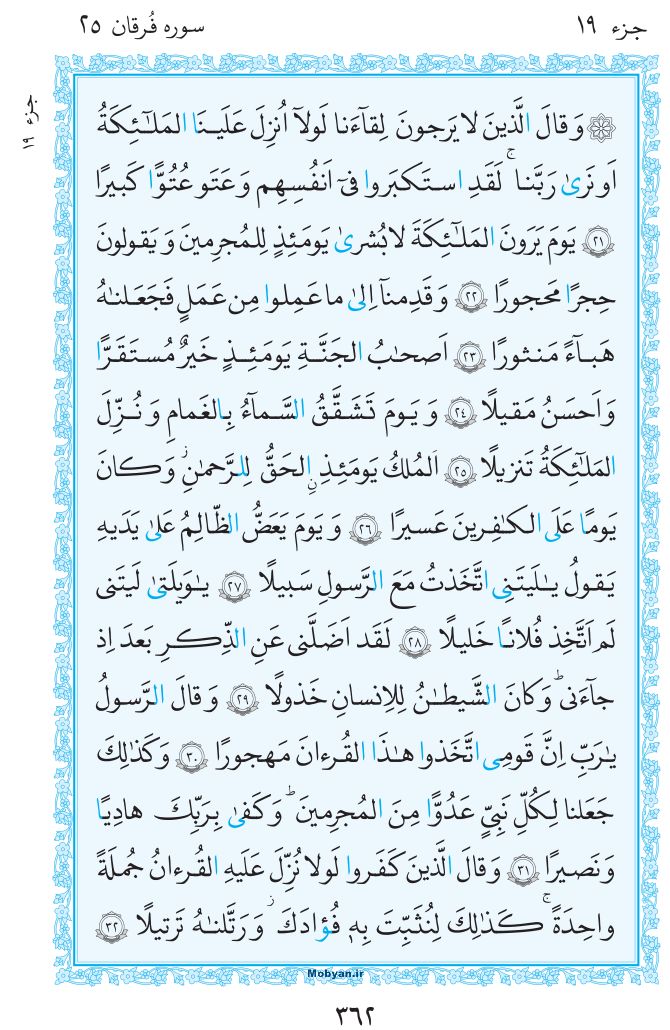 جزء ۱۹
سوره فُرقان ۲۵
جزء ۱۹
وَ قالَ الَّذينَ لا يَرجونَ لِقآءَنا لَولآ اُنزِلَ عَلَينَا المَلـٰٓئِكَةُ
اَو نَرىٰ رَبَّنا ۚ لَقَدِ استَكبَروا فىٓ اَنفُسِهِم وَ عَتَو عُتُوًّا كَبيرًا
﴿۲۱﴾ يَومَ يَرَونَ المَلـٰٓئِكَةَ لا بُشرىٰ يَومَئِذٍ لِلمُجرِمينَ وَ يَقولونَ
حِجرًا مَحجورًا ﴿۲۲﴾ وَ قَدِمنآ اِلىٰ ما عَمِلوا مِن عَمَلٍ فَجَعَلنـٰهُ
هَبـآءً مَنثورًا ﴿۲۳﴾ اَصحـٰبُ الجَنَّةِ يَومَئِذٍ خَيرٌ مُستَقَرًّا
وَ اَحسَنُ مَقيلًا ﴿۲۴﴾ وَ يَومَ تَشَقَّقُ السَّمآءُ بِالغَمامِ وَ نُزِّلَ
المَلـٰٓئِكَةُ تَنزيلًا ﴿۲۵﴾ اَلمُلكُ يَومَئِذٍ ۨالحَقُّ لِلرَّحمـٰنِ ۚ وَ كانَ
يَومًا عَلَى الكـٰفِرينَ عَسيرًا ﴿۲۶﴾ وَ يَومَ يَعَضُّ الظّالِمُ عَلىٰ يَدَيهِ
يَقولُ يـٰلَيتَنِى اتَّخَذتُ مَعَ الرَّسولِ سَبيلًا ﴿۲۷﴾ يـٰوَيلَتىٰ لَيتَنى
لَم اَتَّخِذ فُلانًا خَليلًا ﴿۲۸﴾ لَقَد اَضَلَّنى عَنِ الذِّكرِ بَعدَ اِذ
جآءَنى ۗ وَ كانَ الشَّيطـٰنُ لِلاِنسانِ خَذولًا ﴿۲۹﴾ وَ قالَ الرَّسولُ
يـٰرَبِّ اِنَّ قَومِى اتَّخَذوا هـٰذَا القُرءانَ مَهجورًا ﴿۳۰﴾ وَ كَذٰلِكَ
جَعَلنا لِكُلِّ نَبِىٍّ عَدُوًّا مِنَ المُجرِمينَ ۗ وَ كَفىٰ بِرَبِّكَ هادِيًا
وَ نَصيرًا ﴿۳۱﴾ وَ قالَ الَّذينَ كَفَروا لَولا نُزِّلَ عَلَيهِ القُرءانُ جُملَةً
واحِدَةً ۚ كَذٰلِكَ لِنُثَبِّتَ بِهٖ فُؤادَكَ ۖ وَ رَتَّلنـٰهُ تَرتيلًا ﴿۳۲﴾
Mobyan.ir
۳۶۲